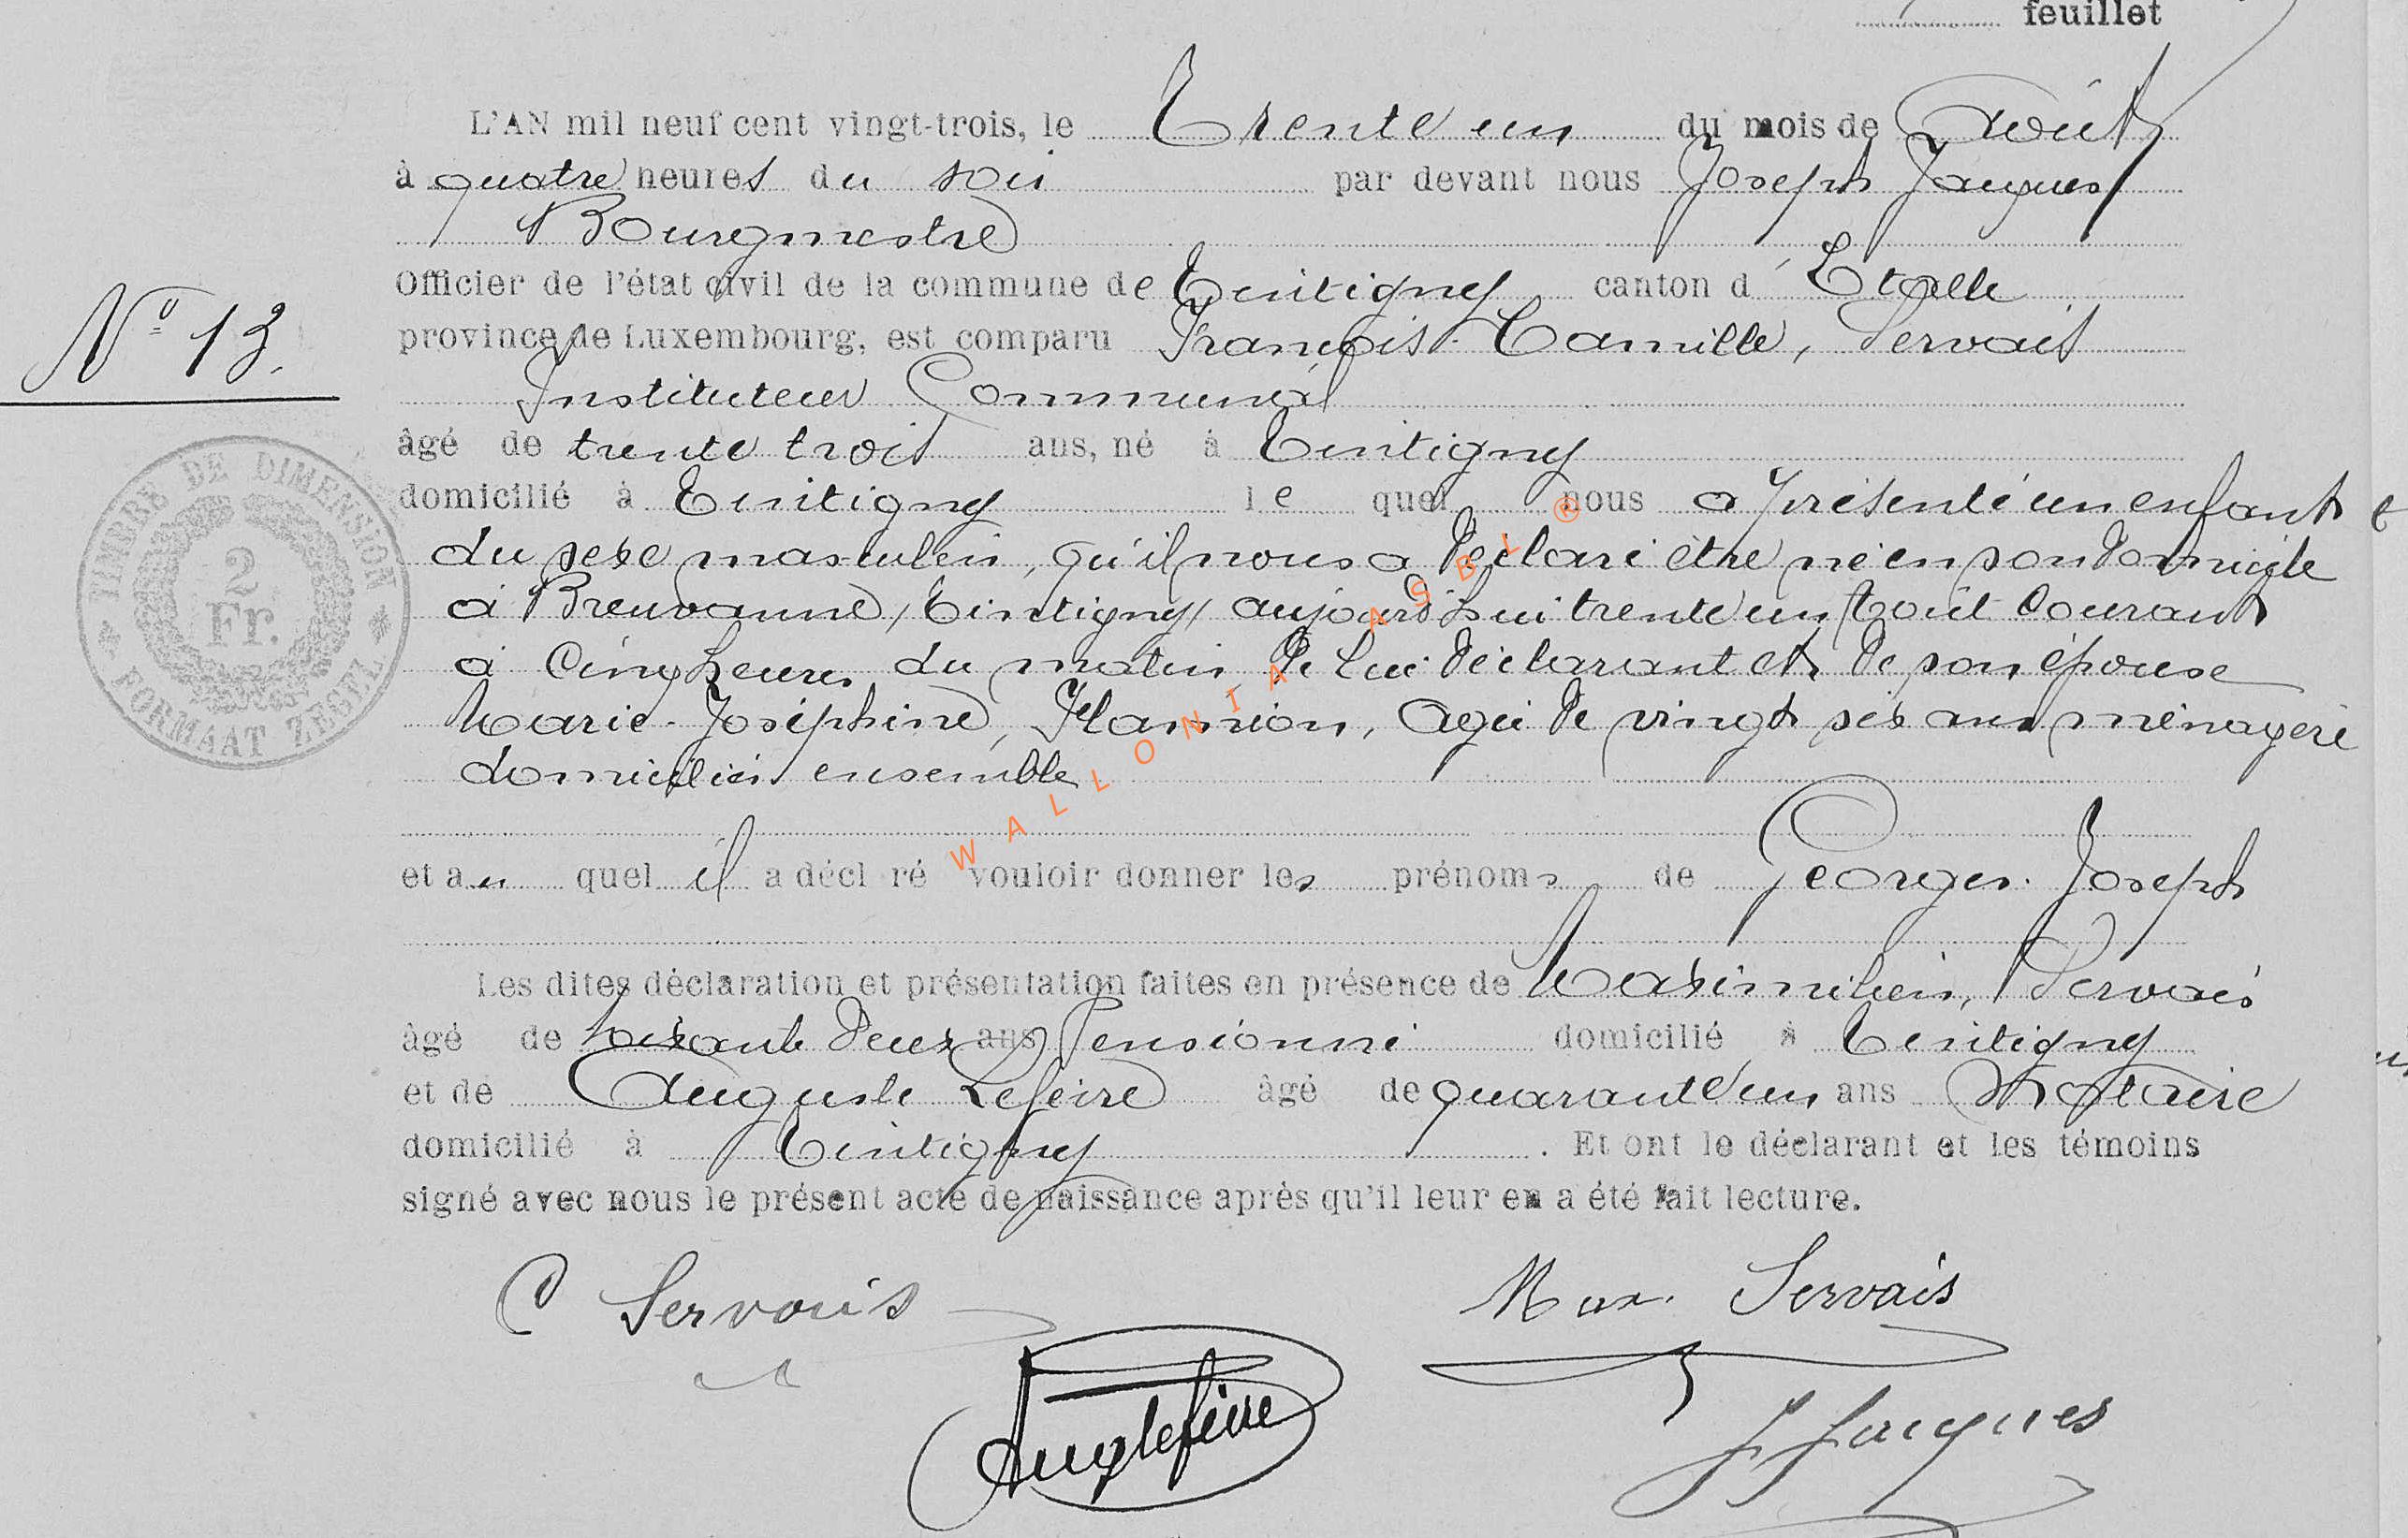 feuillet
L'AN mil neuf cent vingt-trois, le Trente un du mois de Août
à quatre heures du soir par devant nous Joseph Jacques
Bourgmestre
Officier de l'état civil de la commune de Tintigny canton d'Etalle
N° 13.
province de Luxembourg, est comparu François-Camille, Servais
Instituteur Communal
âgé de trente trois ans, né à Tintigny
domicilié à Tintigny le quel nous a présenté un enfant
du sexe masculin, qu'il nous a déclaré être né en son domicile
à Breuvanne, (Tintigny) aujourd'hui trente un Août courant
à cinq heures du matin de lui déclarant et de son épouse
Marie-Joséphine, Hannion, agée de vingt six ans ménagère
domiciliés ensemble
et au quel il a décl ré vouloir donner les prénoms de Georges-Joseph
Les dites déclaration et présentation faites en présence de Maximilien, Servais
âgé de soixante deux ans Pensionné domicilié à Tintigny
et de Auguste Lefèvre âgé de quarante un ans Notaire
domicilié à Tintigny . Et ont le déclarant et les témoins
signé avec nous le présent acte de naissance après qu'il leur en a été fait lecture.
C Servais
Max. Servais
Aug Lefèvre
J Jacques
TIMBRE DE DIMENSION
2
Fr.
FORMAAT ZEGEL
WALLONIA ASBL ®